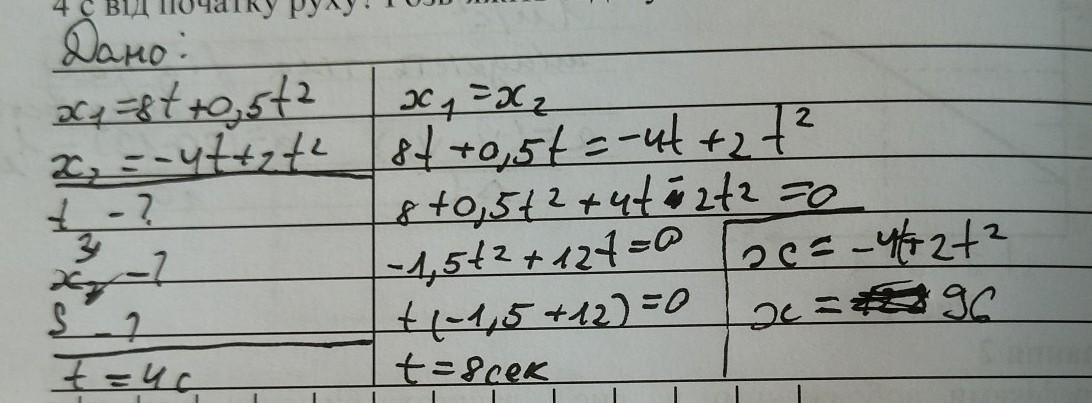 4 с від початку руху?
Дано:
x₁ = 8t + 0,5t²
x₂ = -4t + 2t²
t - ?
xз - ?
S - ?
t = 4с
x₁ = x₂
8t + 0,5t = -4t + 2t²
8 + 0,5t² + 4t - 2t² = 0
-1,5t² + 12t = 0
t(-1,5 + 12) = 0
t = 8сек
x = -4t + 2t²
x = 96